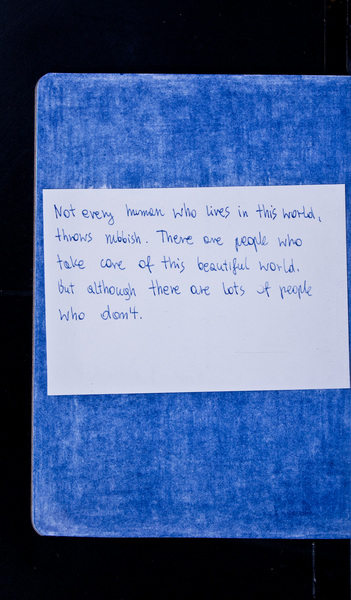 Not every human who lives in this world,
throws rubbish. There are people who
take care of this beautiful world.
But although there are lots of people
who don't.